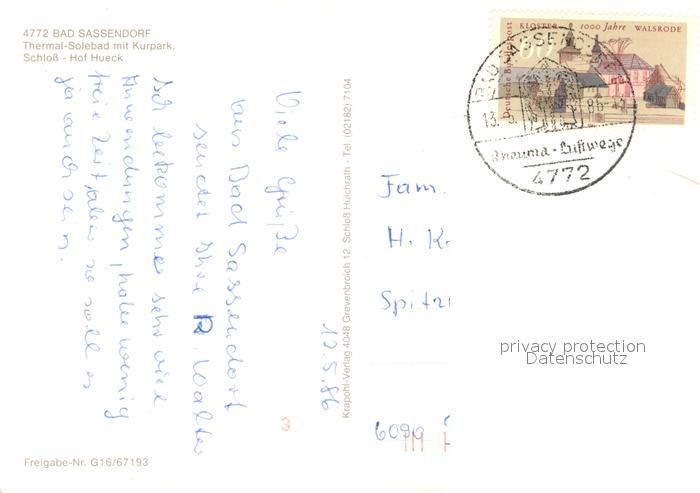 4772 BAD SASSENDORF
Thermal-Solebad mit Kurpark.
Schloß - Hof Hueck
12.5.86
Viele Grüße
aus Bad Sassendorf
sendet Ihre R. Walter
Ich bekomme sehr viel
Anwendungen, habe wenig
freie Zeit, aber so soll es
ja auch sein.
Freigabe-Nr. G16/67193
3
Krapohl-Verlag 4048 Grevenbroich 12, Schloß Hülchrath - Tel. (02182) 7104
KLOSTER 1000 Jahre WALSRODE
Deutsche Bundespost
60
BAD SASSENDORF
13.
Rheuma-Luftwege
4772
Fam.
H. K
Spitz
privacy protection
Datenschutz
6090